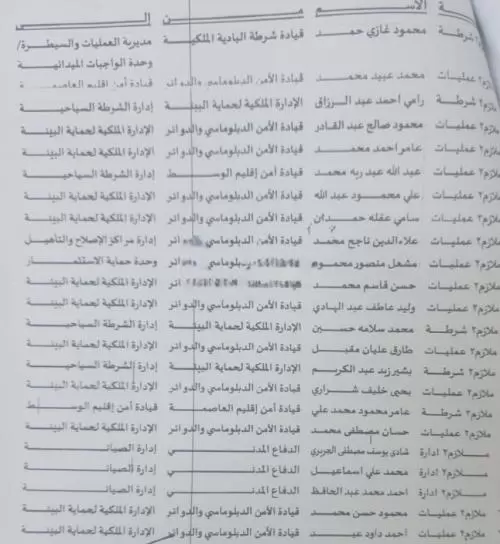 ـة الاســـم مـــن إلـــى
ملازم٢ شرطة محمود غازي حمد قيادة شرطة البادية الملكية مديرية العمليات والسيطرة/
وحدة الواجبات الميدانية
ملازم٢ عمليات محمد عبيد محمد قيادة الأمن الدبلوماسي والدوائر قيادة أمن إقليم العاصمة
ملازم٢ شرطة رامي احمد عبد الرزاق الإدارة الملكية لحماية البيئة إدارة الشرطة السياحية
ملازم٢ عمليات محمود صالح عبد القادر قيادة الأمن الدبلوماسي والدوائر الإدارة الملكية لحماية البيئة
ملازم٢ عمليات عامر احمد محمد قيادة الأمن الدبلوماسي والدوائر الإدارة الملكية لحماية البيئة
ملازم٢ عمليات عبد الله عبد ربه محمد قيادة أمن إقليم الوسط إدارة الشرطة السياحية
ملازم٢ عمليات علي محمود عبد الله قيادة الأمن الدبلوماسي والدوائر الإدارة الملكية لحماية البيئة
ملازم٢ عمليات سامي عقله حمدان قيادة الأمن الدبلوماسي والدوائر الإدارة الملكية لحماية البيئة
ملازم٢ عمليات علاءالدين ناجح محمد قيادة الأمن الدبلوماسي ائر إدارة مراكز الإصلاح والتأهيل
ملازم٢ عمليات مشعل منصور دبلوماسي ائر وحدة حماية الاستثمار
ملازم٢ عمليات حسن قاسم محمد ائر الإدارة الملكية لحماية البيئة
ملازم٢ عمليات وليد عاطف عبد الهادي قيادة الأمن الدبلوماسي والدوائر الإدارة الملكية لحماية البيئة
ملازم٢ شرطة محمد سلامه حسين الإدارة الملكية لحماية البيئة إدارة الشرطة السياحية
ملازم٢ عمليات طارق عليان مقبل قيادة الأمن الدبلوماسي والدوائر الإدارة الملكية لحماية البيئة
ملازم٢ شرطة بشير زيد عبد الكريم الإدارة الملكية لحماية البيئة إدارة الشرطة السياحية
ملازم٢ عمليات يحيى خليف شراري قيادة الأمن الدبلوماسي والدوائر الإدارة الملكية لحماية البيئة
ملازم٢ شرطة عامر محمود محمد علي قيادة أمن إقليم العاصمة قيادة أمن إقليم الوسط
ملازم٢ عمليات حسان مصطفى محمد قيادة الأمن الدبلوماسي والدوائر الإدارة الملكية لحماية البيئة
ملازم٢ ادارة شادي يوسف مصطفى الدفاع المدني إدارة الصيانة
ملازم٢ ادارة محمد علي اسماعيل الدفاع المدني إدارة الصيانة
ملازم٢ ادارة احمد محمد عبد الحافظ الدفاع المدني إدارة الصيانة
ملازم٢ عمليات محمود حسن محمد قيادة الأمن الدبلوماسي والدوائر الإدارة الملكية لحماية البيئة
ملازم٢ عمليات احمد داود عيد قيادة الأمن الدبلوماسي والدوائر الإدارة الملكية لحماية البيئة